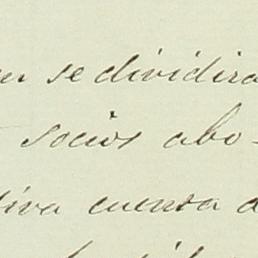 se dividira
socios abo-
tiva cuenta a